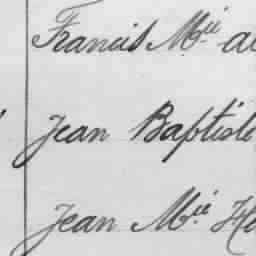 Francis M.ie al
Jean Baptiste
Jean M.ie He